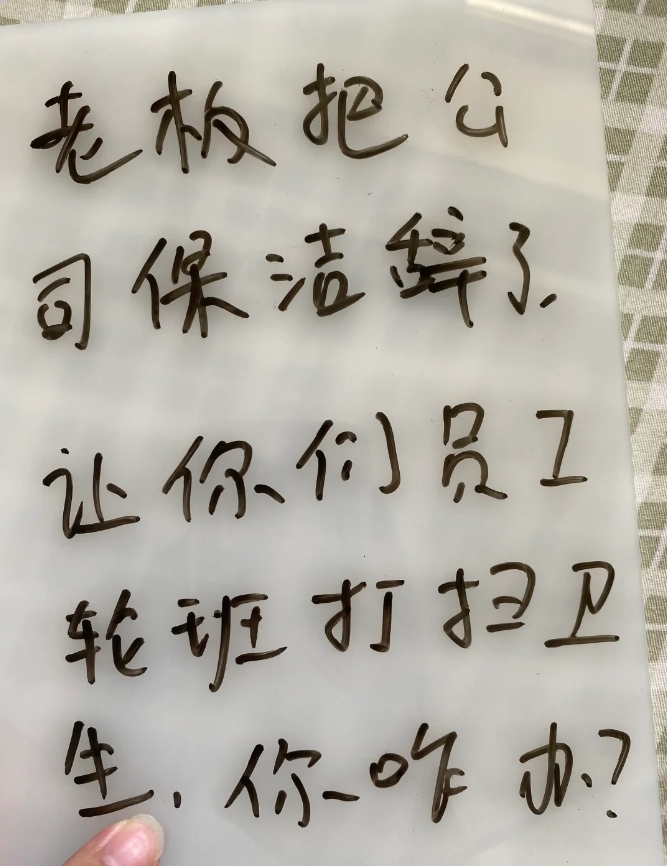 老板把公
司保洁辞了
让你们员工
轮班打扫卫
生，你咋办？